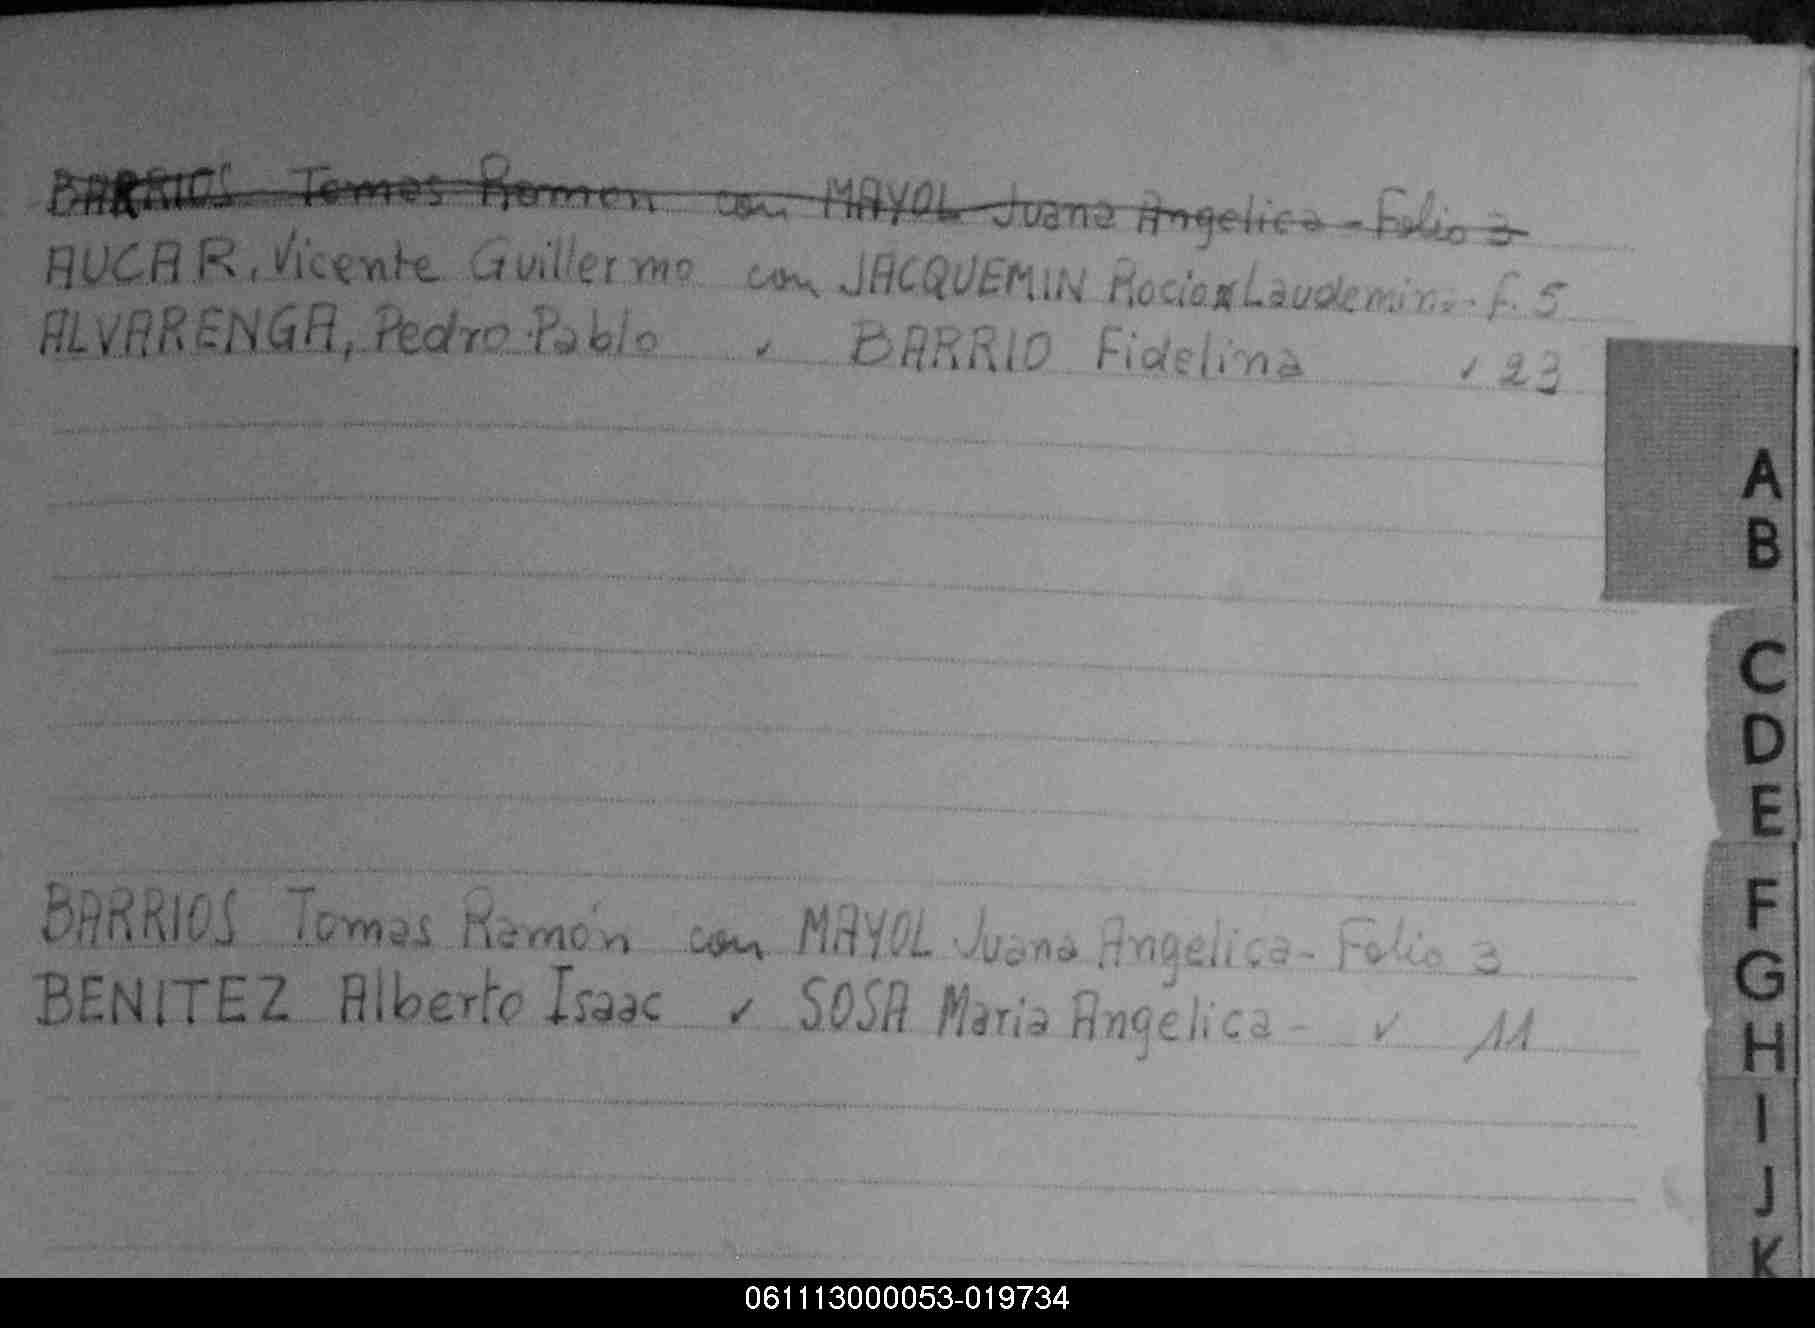 BARRIOS Tomas Ramon con MAYOL Juana Angelica - Folio 3
AUCAR, Vicente Guillermo con JACQUEMIN Rocio Laudemina - F. 5
ALVARENGA, Pedro Pablo ✓ BARRIO Fidelina ✓ 23
A
B
C
D
E
BARRIOS Tomas Ramón con MAYOL Juana Angelica - Folio 3
BENITEZ Alberto Isaac ✓ SOSA Maria Angelica - ✓ 11
F
G
H
I
J
K
061113000053-019734